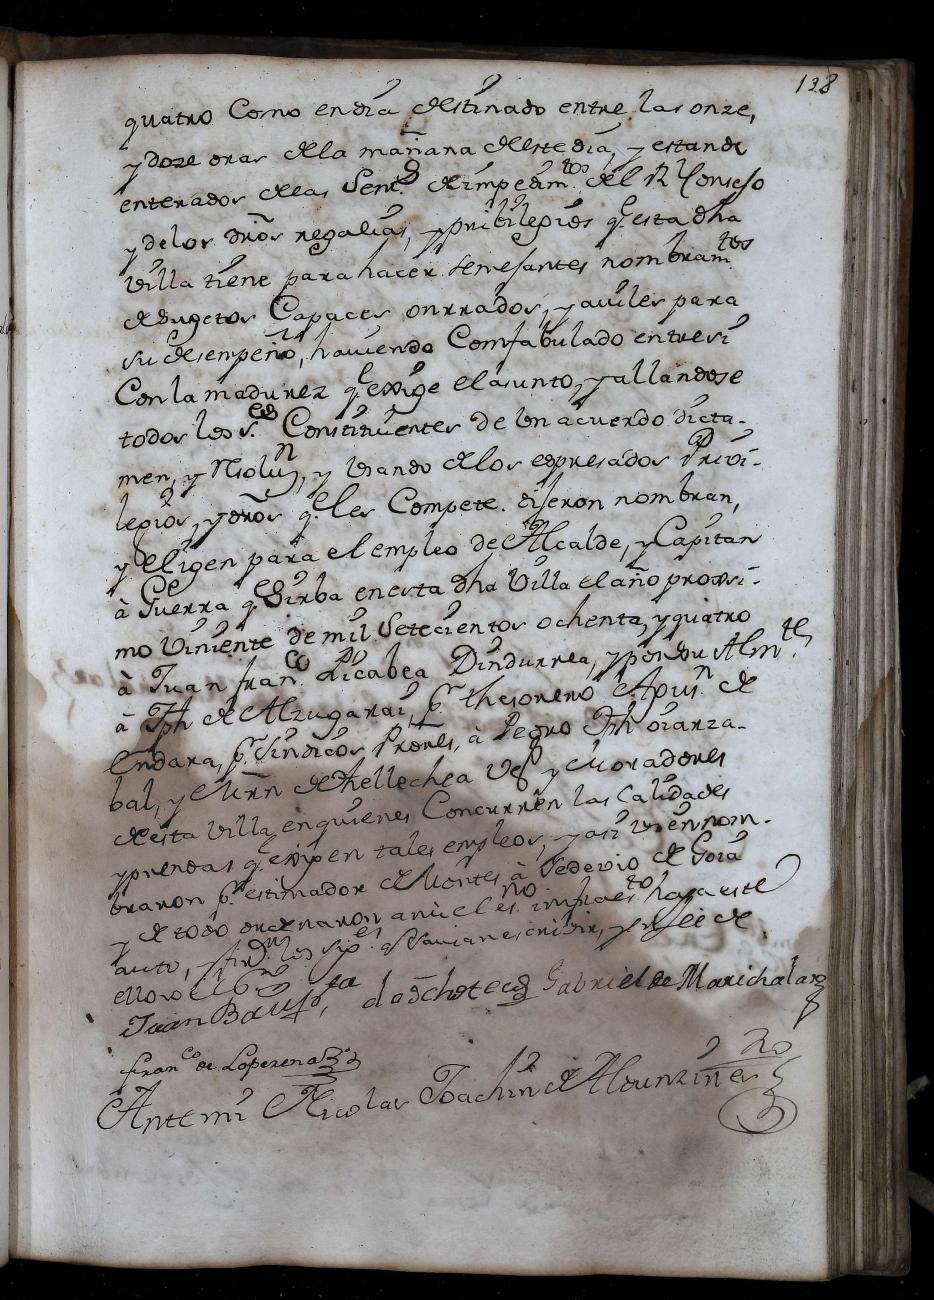 138
quatro Como en dia destinado entre las onze,
y doze oras de la mañana de este dia, y estando
enterados de las Sent.s de impedim.tos del R Consejo
y de los dr̃os regalias, y pribilepios q.e esta dha
Villa tiene para hacer semejantes nombram.tos
de sugetos Capaces onrrados, y auiles para
su desempeño, hauiendo Comfabulado entre si
Con la madurez q.e exige el asunto, y allandose
todos los s.res Constituientes de Un acuerdo dicta-
men, y Resoluz.n, y Usando de los espresados Privi-
lepios, y dr̃os q.e les Compete. dijeron nombran,
y Eligen para el empleo de Alcalde, y Capitan
à Guerra q.e Sirba en esta dha Villa el año proxsi-
mo Viniente de mil Setecientos ochenta, y quatro
à Juan fran.co Dindurrea, y por su
à Jph de Alzugarai, p.r thesorero de
Endara, p.r Sindicos Prores, à Pedro Jph oianza-
bal, y Mr̃n de Tellechea Vez.s y Moradores
de esta Villa, en quienes Concurren las Calidades
y prendas q.e exipen tales empleos, y asi vien nom-
braron p.r estimador de Montes, à Federio de Goia
y de todo ordenaron a mi el es.no haga este
auto, y firm.n los q.e Sauian escriuir, y en fee de
ello yo el es.no
Juan Baup.ta Gabriel de Marichalar
fran.co de Loperena
Ante mi Nicolas Joachin de Alduncin es.no